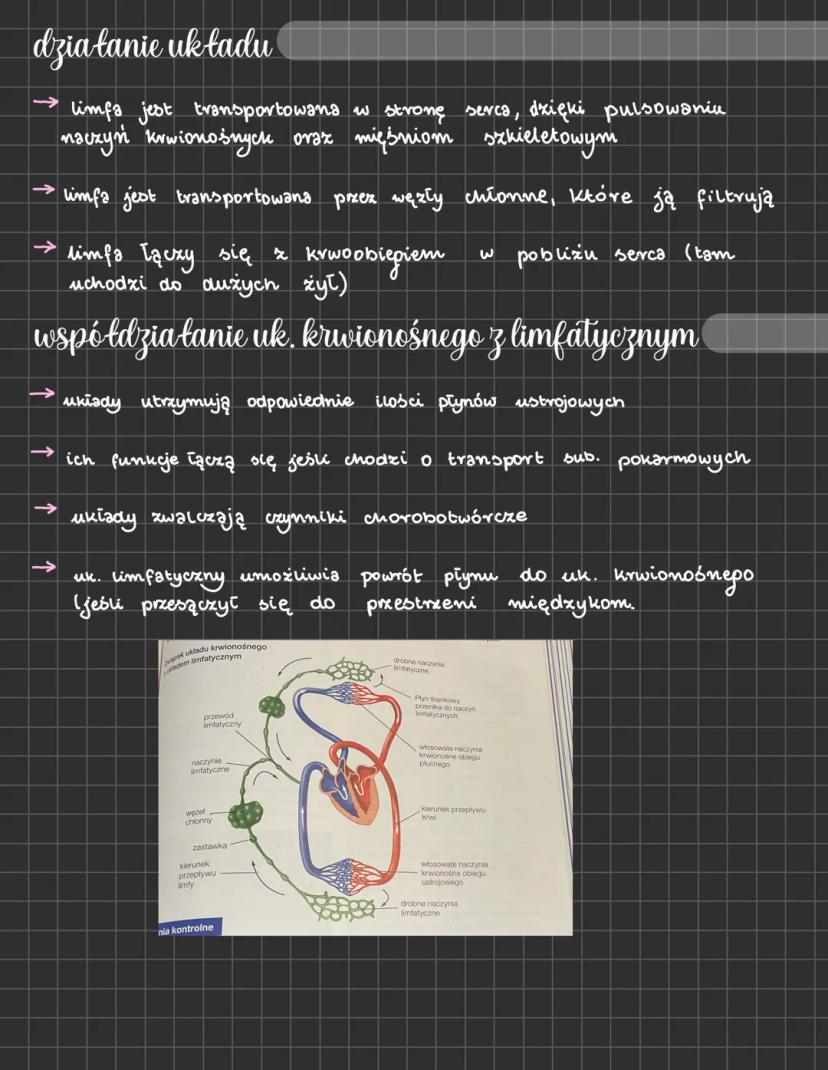 działanie układu
→ limfa jest transportowana w stronę serca, dzięki pulsowaniu
naczyń krwionośnych oraz mięśniom szkieletowym
→ limfa jest transportowana przez węzły chłonne, które ją filtrują
→ limfa łączy się z krwoobiegiem w pobliżu serca (tam
uchodzi do dużych żył)
współdziałanie uk. krwionośnego z limfatycznym
→ układy utrzymują odpowiednie ilości płynów ustrojowych
→ ich funkcje łączą się jeśli chodzi o transport sub. pokarmowych
→ układy zwalczają czynniki chorobotwórcze
→ uk. limfatyczny umożliwia powrót płynu do uk. krwionośnego
(jeśli przesączył się do przestrzeni międzykom.
Związek układu krwionośnego
z układem limfatycznym
drobne naczynia
limfatyczne
Płyn tkankowy
przenika do naczyń
limfatycznych.
przewód
limfatyczny
włosowate naczynia
krwionośne obiegu
płucnego
naczynie
limfatyczne
kierunek przepływu
krwi
węzeł
chłonny
zastawka
kierunek
przepływu
limfy
włosowate naczynia
krwionośne obiegu
ustrojowego
drobne naczynia
limfatyczne
nia kontrolne